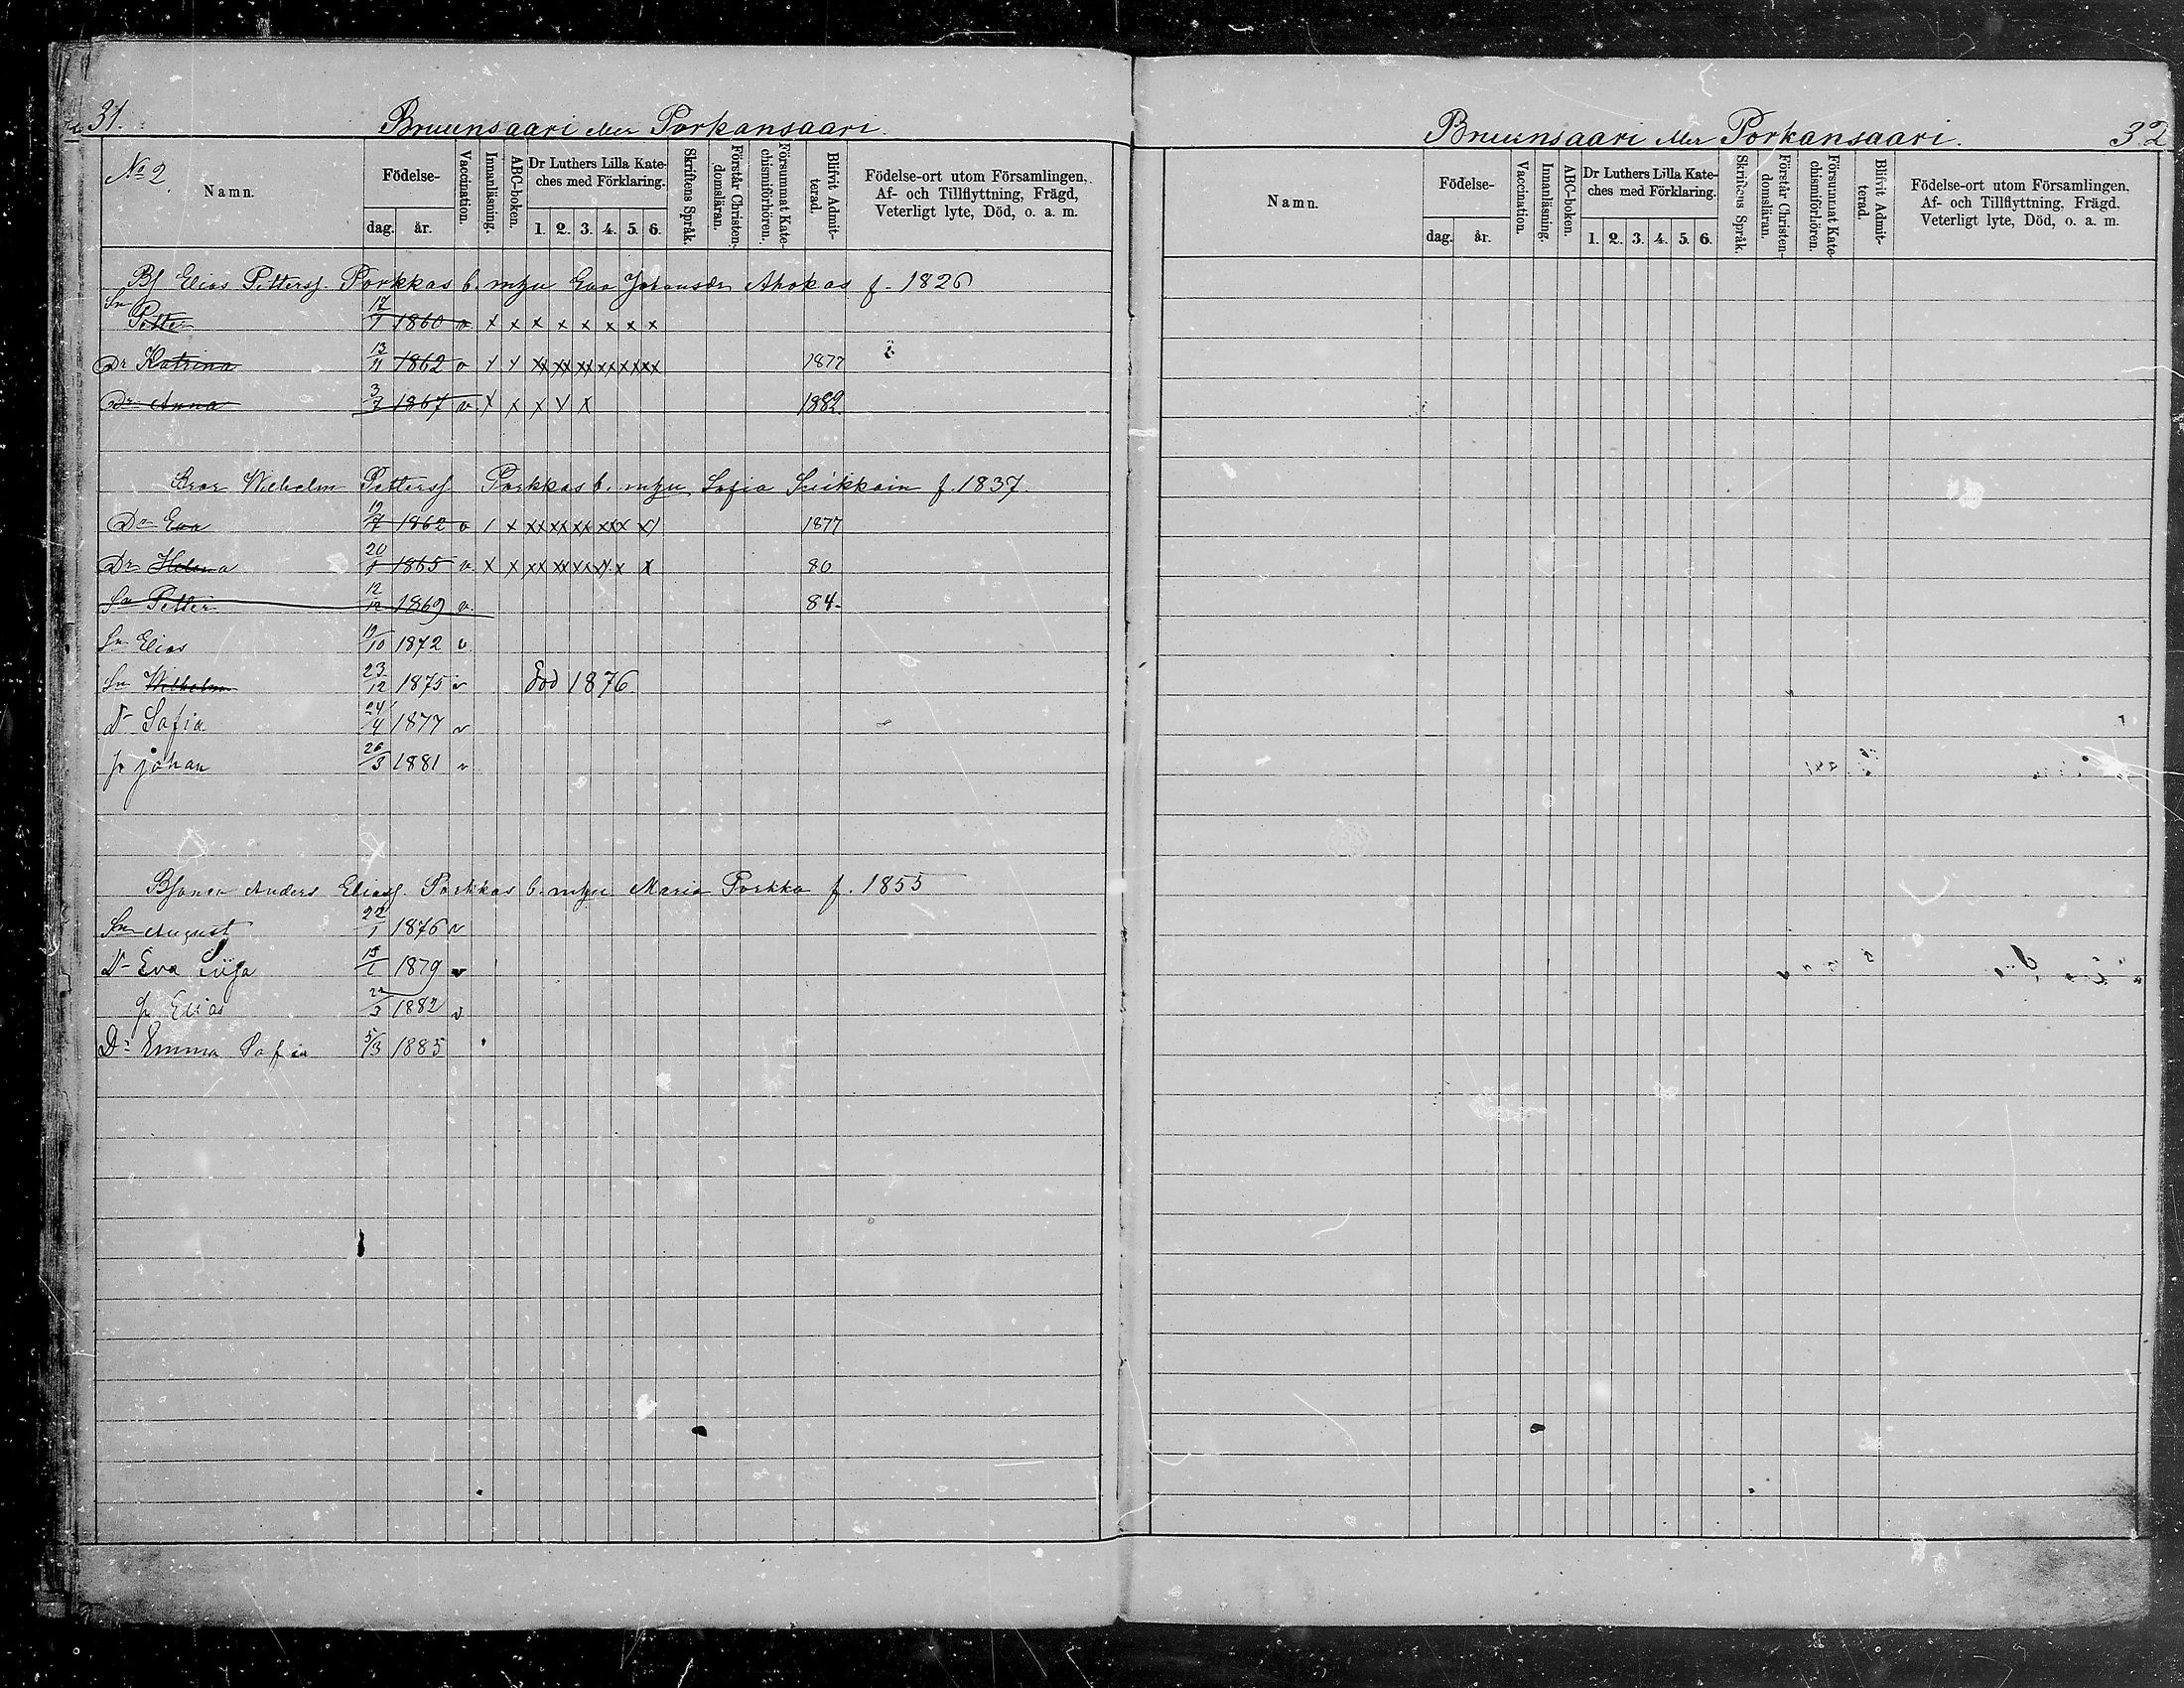 31.
Bruunsaari eller Porkansaari.
No 2.
Namn.
Födelse-
dag. år.
Vaccination.
Innanläsning.
ABC-boken.
Dr Luthers Lilla Kate-
ches med Förklaring.
1. 2. 3. 4. 5. 6.
Skriftens Språk.
Förstår Christen-
domsläran.
Försummat Kate-
chismiförhören.
Blifvit Admit-
terad.
Födelse-ort utom Församlingen,
Af- och Tillflyttning, Frägd,
Veterligt lyte, Död, o. a. m.
Elias Petterss. Porkkas b. mhu Eva Johansdr Ahokas f. 1826
Sn
Petter 17/7 1860 v x x x x x x x x
Dr Katrina 13/11 1862 v x x xx xx xx xx xx xx 1877
Dr Anna 3/7 1867 v x x x x x 1882
Bror Wilhelm Petterss. Porkkas b. mhu Sofia f. 1837.
Dr Eva 1862 v 1877
Dr Helena 1865 v 80
Sn Petter 12/12 1869 v 84.
Sn Elias 19/10 1872 v
Sn Wilhelm 23/12 1875 v död 1876
Dr Sofia 24/4 1877 v
johan 26/3 1881 v
Anders Eliass. Porkkas b. mhu Maria Porkka f. 1855
Sn August 22/1 1876 v
Dr Eva 1879 v
Elias 1882 v
Dr Emma Sofia 5/3 1885
Bruunsaari eller Porkansaari.
32
Namn.
Födelse-
dag. år.
Vaccination.
Innanläsning.
ABC-boken.
Dr Luthers Lilla Kate-
ches med Förklaring.
1. 2. 3. 4. 5. 6.
Skriftens Språk.
Förstår Christen-
domsläran.
Försummat Kate-
chismiförhören.
Blifvit Admit-
terad.
Födelse-ort utom Församlingen,
Af- och Tillflyttning, Frägd.
Veterligt lyte, Död, o. a. m.